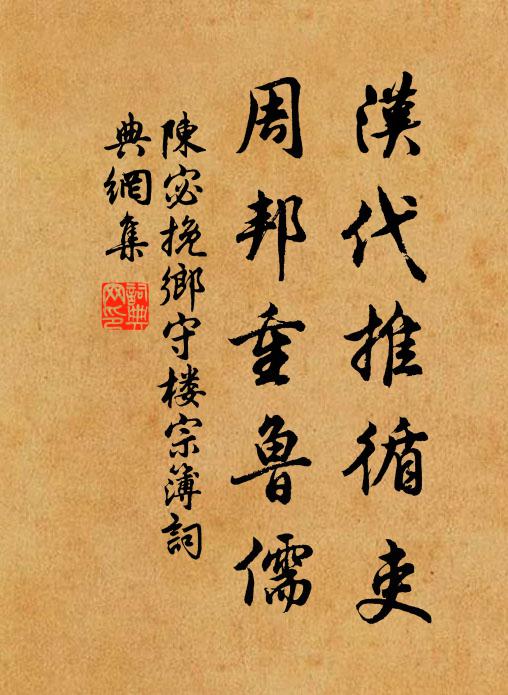 漢代推循吏
周邦重魯儒
陳宓挽鄉守楼宗簿詞
典網集
詞典
网印